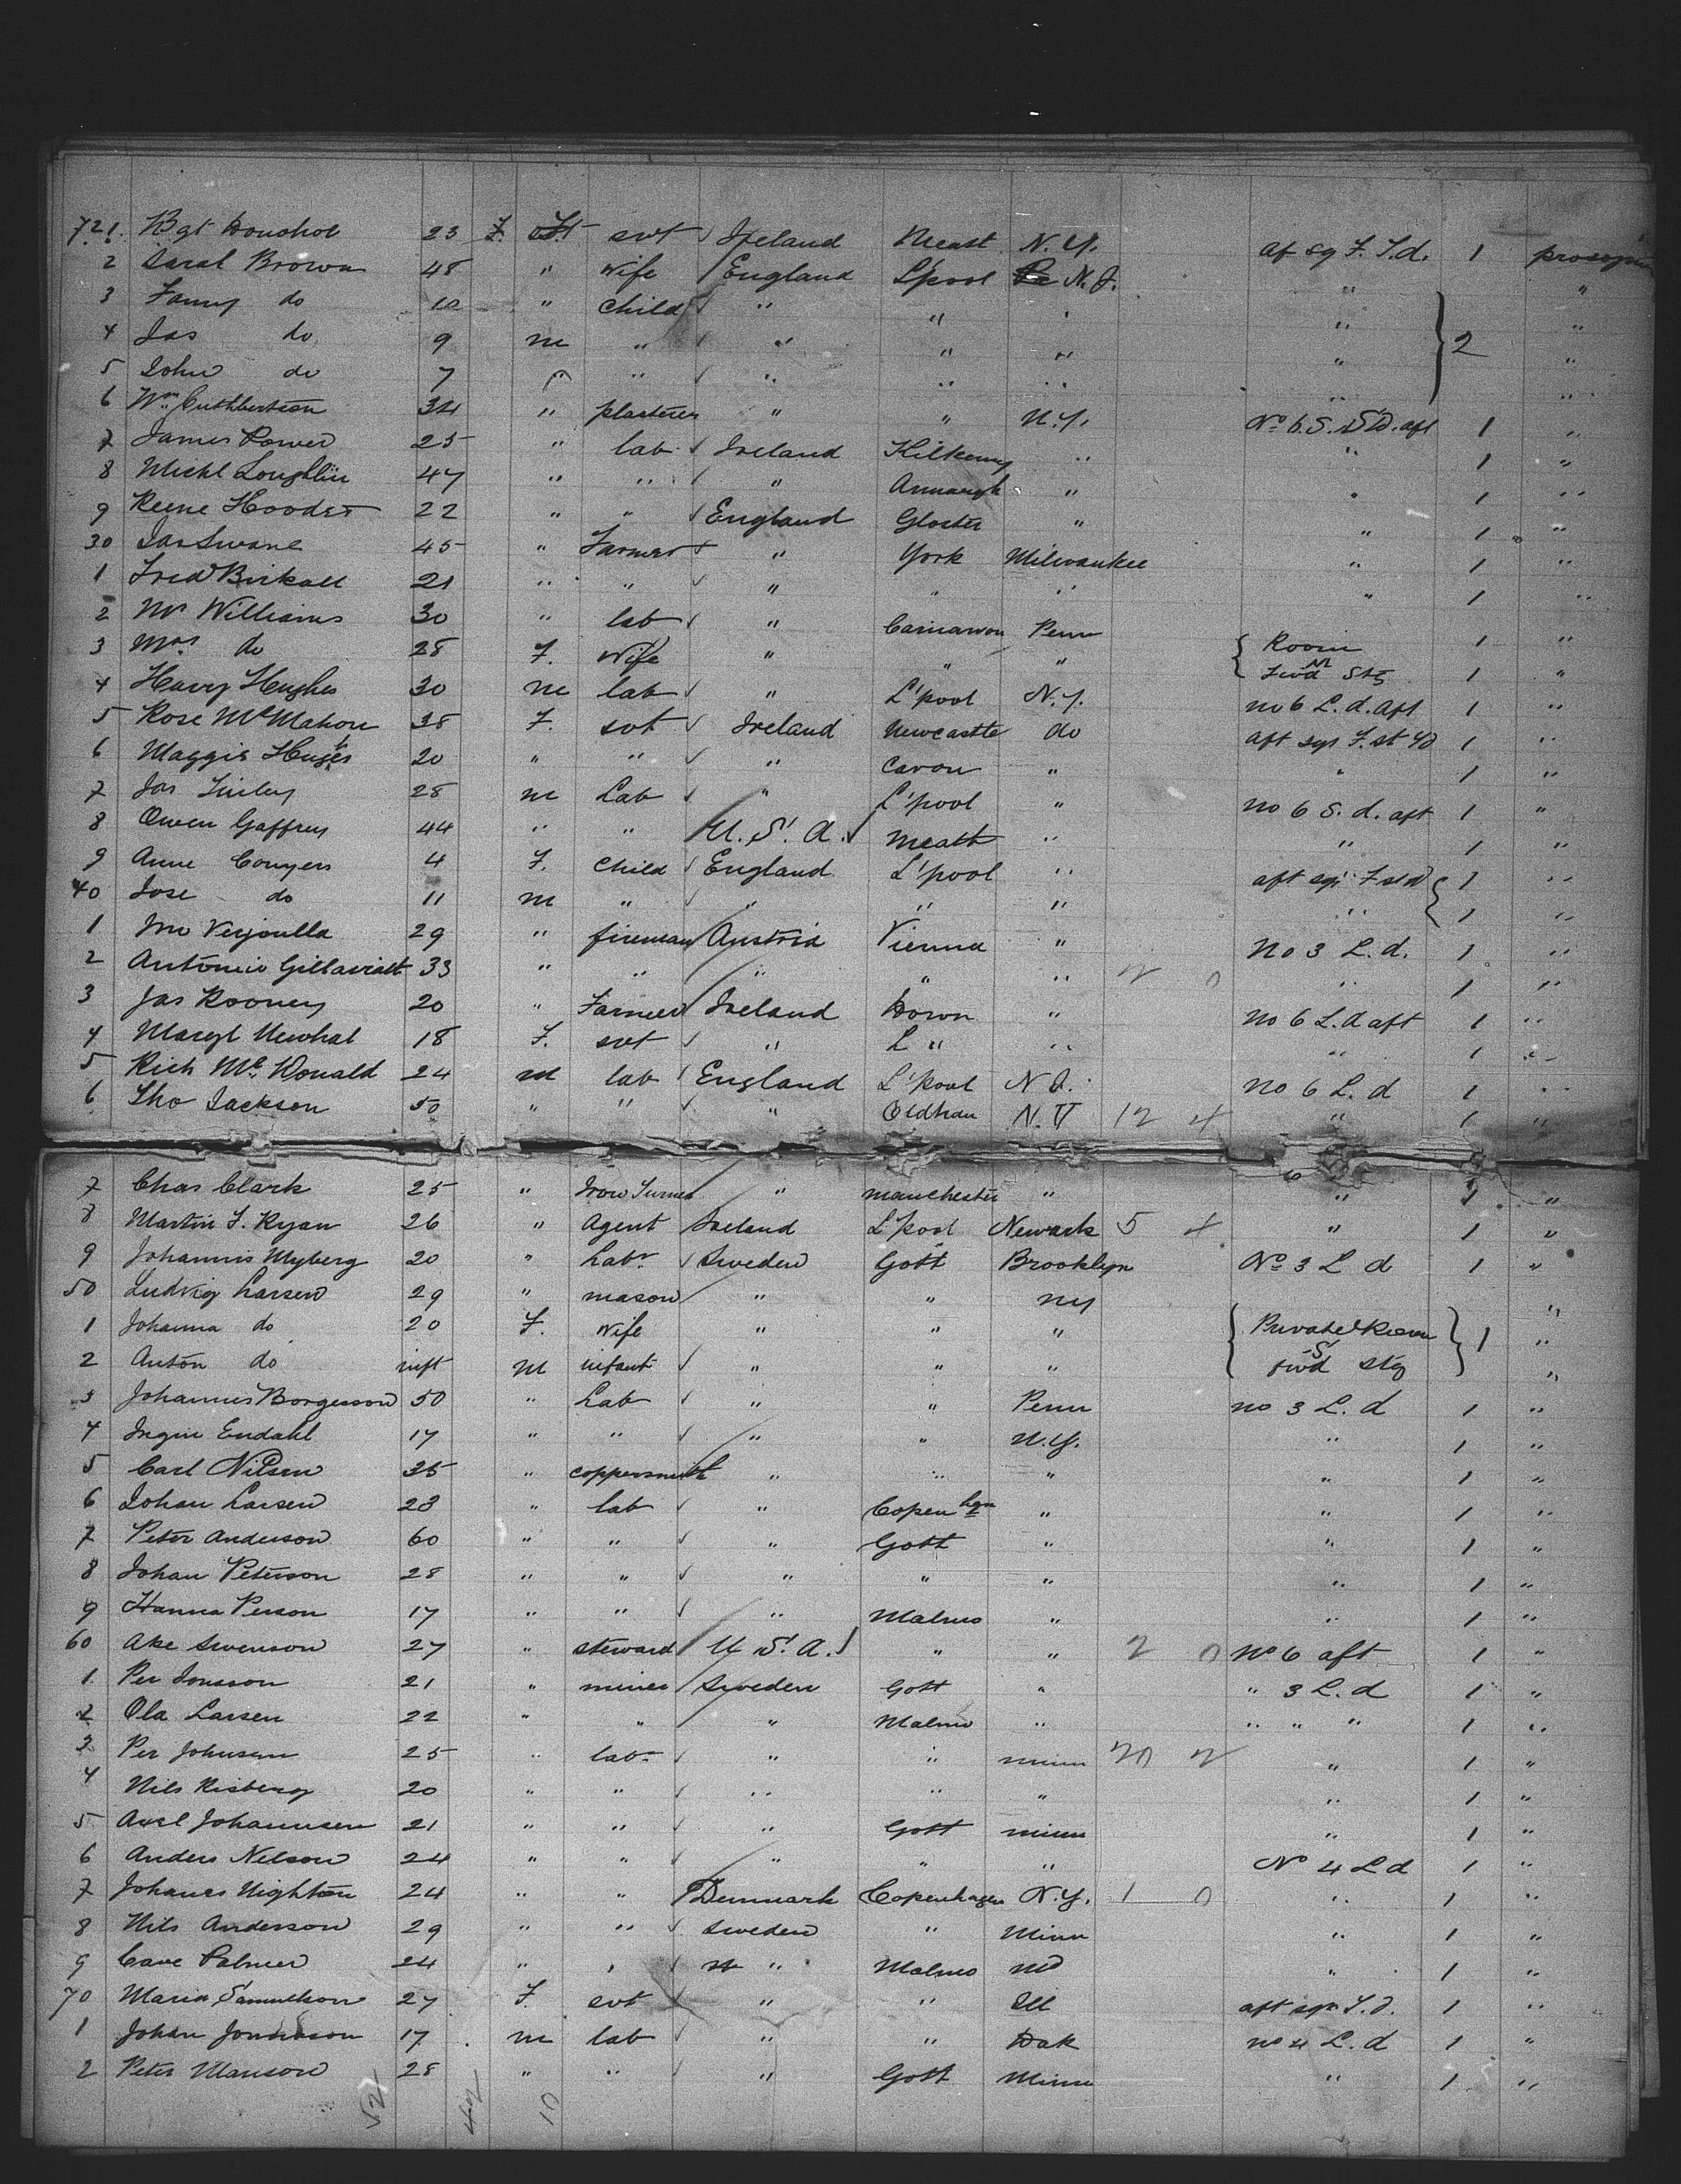 721. Bgt Donohoe 23 F. svt Ireland Meath N.Y. aft sq F. S.d. 1
2 Sarah Brown 48 " Wife England L'pool N.J. " "
3 Fanny do 10 " Child " " " " "
4 Jas do 9 m " " " " " 2 "
5 John do 7 " " " " " " "
6 Wm Cuthbertson 34 " plasterer " " N.Y. No 6. S. aft 1 "
7 James Power 25 " lab Ireland Kilkenny " " 1 "
8 Michl Loughlin 47 " " " Armagh " " 1 "
9 22 " " England Gloster " " 1 "
30 Jas 45 " Farmer " York Milwaukee " 1 "
1 Fred Birkall 21 " " " " " " 1 "
2 Mr Williams 30 " lab " Carnarvon Penn Room 1 "
3 Mrs do 28 F. Wife " " " Fwd Stg 1 "
4 Harry Hughes 30 m lab " L'pool N.Y. no 6 L.d. aft 1 "
5 Rose McMahon 38 F. svt Ireland Newcastle do aft sqr F. st 1 "
6 Maggie 20 " " " Cavan " " 1 "
7 Jas 28 m Lab " L'pool " no 6 S. d. aft 1 "
8 Owen Gaffrey 44 " " U.S.A. Meath " " 1 "
9 Anne Conyers 4 F. Child England L'pool " aft sqr F std 1 "
40 Jose do 11 m " " " " " 1 "
1 29 " fireman Austria Vienna " No 3 L.d. 1 "
2 Antonio 33 " " " " " 2 0 " 1 "
3 Jas Rooney 20 " Farmer Ireland Down " no 6 L.d aft 1 "
4 Margt Newhal 18 F. svt " L " " " 1 "
5 Rich Mc Donald 24 m lab England L'pool N J. no 6 L.d 1 "
6 Tho Jackson 50 " " " Oldham N.Y 12 4 " 1 "
7 Chas Clark 25 " Iron Turner " Manchester " " 1 "
8 Martin F. Ryan 26 " Agent Ireland L'pool Newark 5 4 " 1 "
9 Johannis Myberg 20 " Labr Sweden Gott Brooklyn No 3 L d 1 "
50 Ludvig Larsen 29 " mason " " ny "
1 Johanna do 20 F. Wife " " " Private Room 1 "
2 Anton do inft m infant " " " fwd stg "
3 Johannes Borgesson 50 " Lab " " Penn no 3 L.d 1 "
4 Endahl 17 " " " " N.Y. " 1 "
5 Carl Nilsen 35 " coppersmith " " " " 1 "
6 Johan Larsen 23 " lab " Copenhgn " " 1 "
7 Peter Anderson 60 " " " Gott " " 1 "
8 Johan Peterson 28 " " " " " " 1 "
9 Hanna Person 17 " " " Malmo " " 1 "
60 Ake Swenson 27 " steward U.S.A. " " 2 0 No 6 aft 1 "
1. Per Jonsson 21 " miner Sweden Gott " " 3 L.d 1 "
2 Ola Larsen 22 " " " Malmo " " " " 1 "
3 Per Johnsen 25 " labr " " minn 20 2 " 1 "
4 Nils Risberg 20 " " " " " " 1 "
5 Axel Johannsen 21 " " " Gott minn " 1 "
6 Anders Nelson 24 " " " " " No 4 L d 1 "
7 Johanes Nighton 24 " " Denmark Copenhagen N.Y. 1 0 " 1 "
8 Nils Anderson 29 " " Sweden " Minn " 1 "
9 Palmer 24 " " " Malmo " 1 "
70 Maria Samuelson 27 F. svt " " Ill aft sqr S.d. 1 "
1 Johan 17 m lab " " Dak no 4 L.d 1 "
2 Peter Manson 28 " " " Gott Minn " 1 "
52 42 10